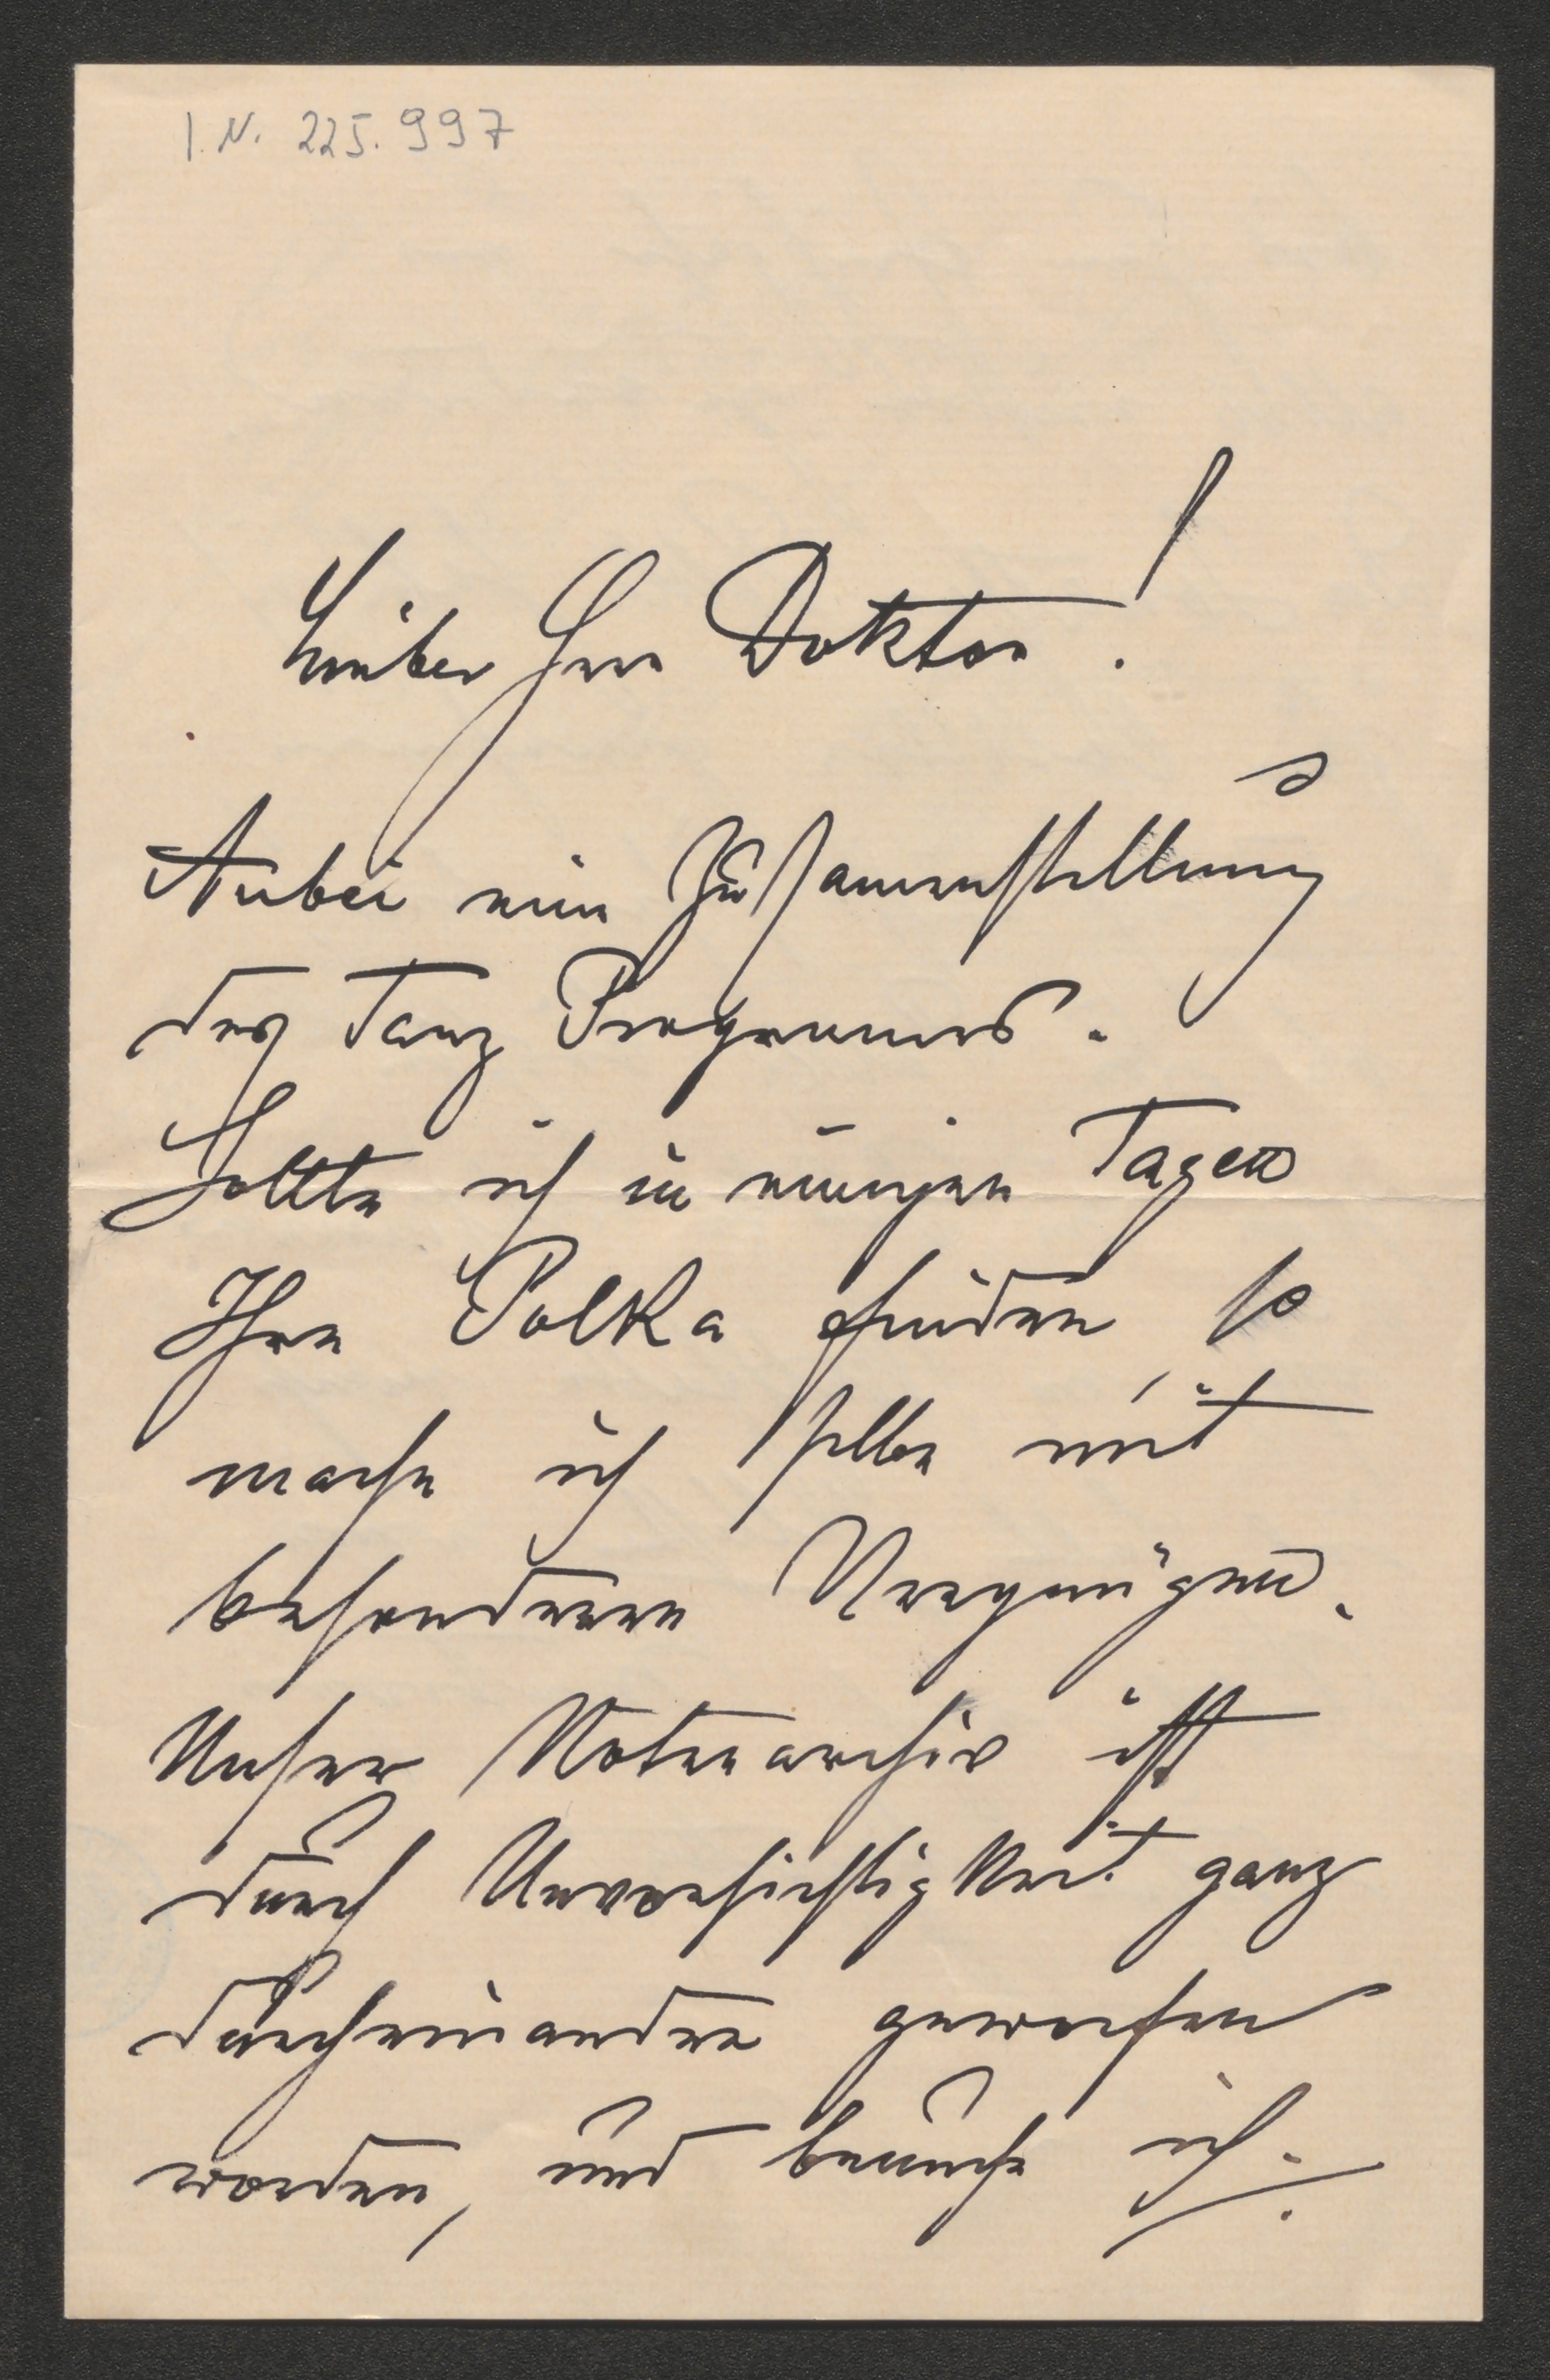 I.N. 225.997
Lieber Herr Doktor!
Anbei eine Zusammenstellung
des Tanz Programmes.
Sollte ich in einigen Tagen
Ihre Polka finden so
mache ich selbe mit
besonderem Vergnügen.
Unser Notenarchiv ist
durch Unvorsichtigkeit ganz
durcheinander geworfen
worden, und brauche ich